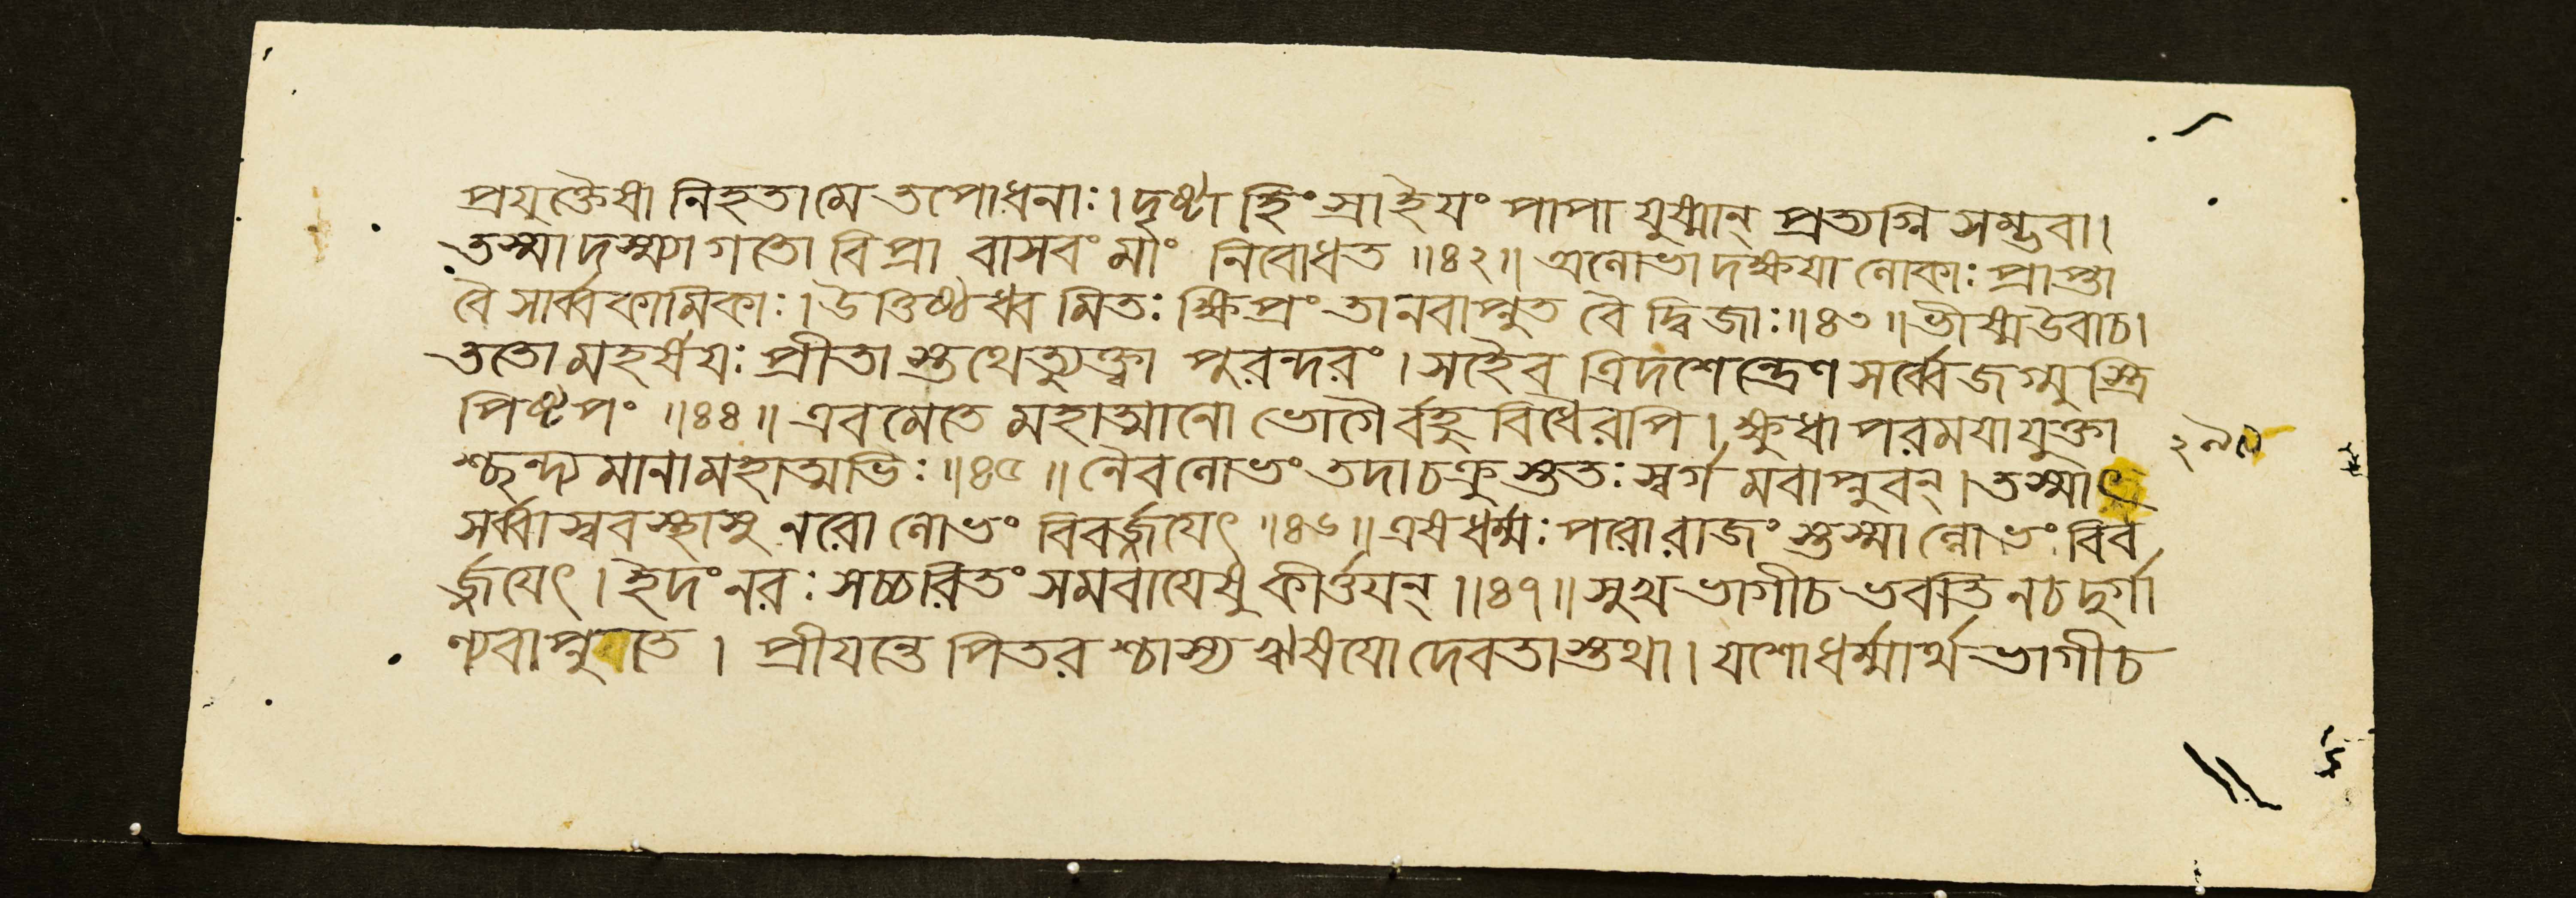 প্রযুক্তৈষা নিহতামে তপোধনাঃ। দুষ্টা হিংস্রাইযং পাপা যুষ্মান্ প্রত্যগ্নি সম্ভবা।
তস্মাদস্ম্যাগতো বিপ্রা বাসবং মাং নিবোধত ॥৪২॥ অলোভাদক্ষযা লোকাঃ প্রাপ্তা
বৈ সার্ব্বকামিকাঃ। উত্তিষ্ঠধ্বমিতঃ ক্ষিপ্রং তানবাপ্নুত বৈ দ্বিজাঃ॥৪৩॥ভীষ্মউবাচ।
ততো মহর্ষযঃ প্রীতাস্তথেত্যুক্ত্বা পুরন্দরং। সহৈব ত্রিদশেন্দ্রেণ সর্ব্বে জগ্মুস্ত্রি
পিষ্টপং ॥৪৪॥ এবমেতে মহাত্মানো ভোগৈর্বহুবিধৈরপি। ক্ষুধা পরমযা যুক্তা
শ্ছন্দ্যমানামহাত্মভিঃ॥৪৫॥ নৈবলোভং তদাচক্রুস্ততঃ স্বর্গমবাপ্নুবন্। তস্মাৎ
সর্ব্বাস্ববস্থাসু নরো লোভং বিবর্জ্জযেৎ ॥৪৬॥ এষ ধর্ম্মঃ পরোরাজং স্তস্মাল্লোভং বিব
র্জ্জযেৎ। ইদং নরঃ সচ্চরিতং সমবাযেষু কীর্ত্তযন্॥৪৭॥ সুখভাগীচ ভবতি নচ দুর্গা
ণ্যবাপ্নুযাতে। প্রীযন্তে পিতরশ্চাস্য ঋষযো দেবতাস্তথা। যশোধর্ম্মার্থ ভাগীচ